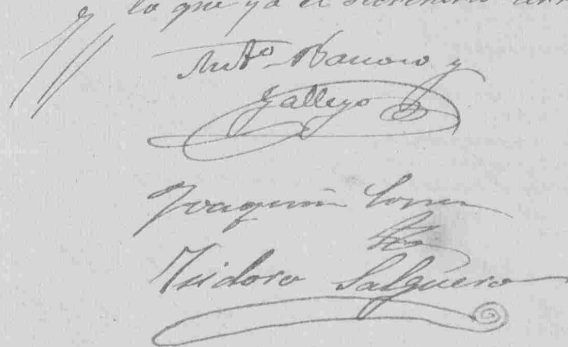 lo que yo el secretario
Anto Navarro y
Gallego
Joaquin
Isidoro Salguero